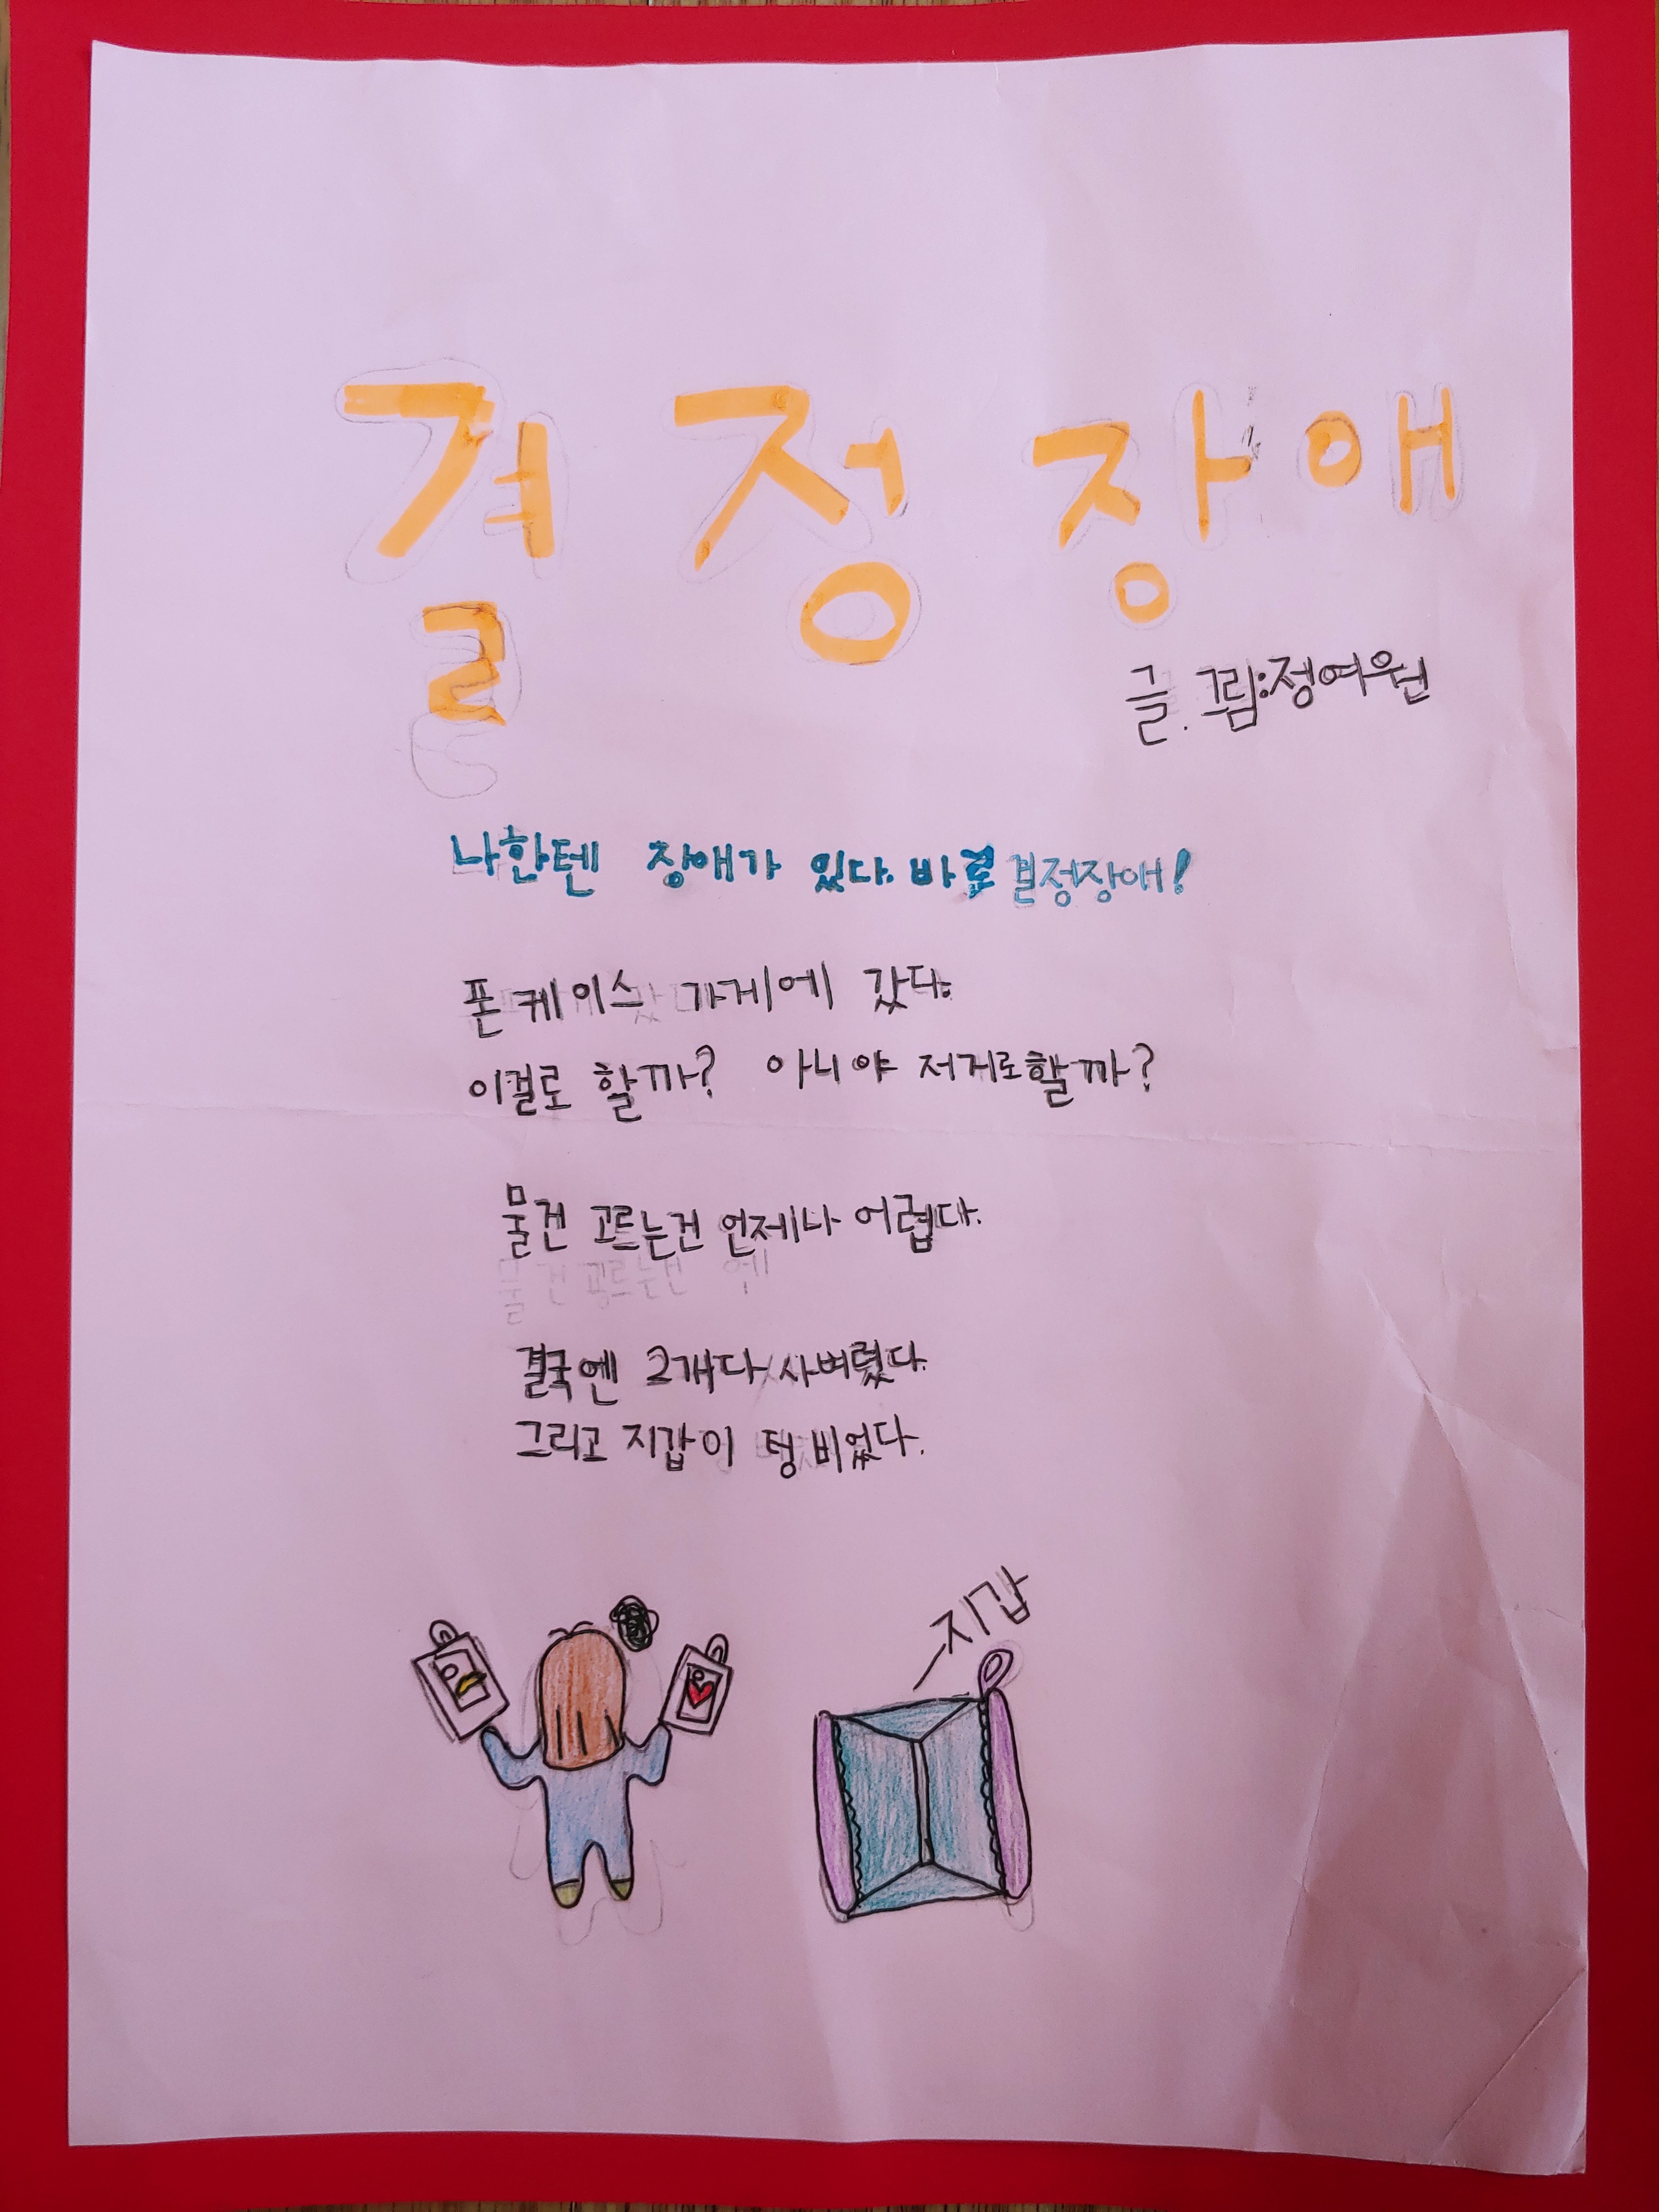 결정장애
글.그림:정여원
나한텐 장애가 있다. 바로 결정장애!
폰케이스 가게에 갔다.
이걸로 할까? 아니야 저거로할까?
물건 고르는건 언제나 어렵다.
결국엔 2개다 사버렸다.
그리고 지갑이 텅 비었다.
지갑